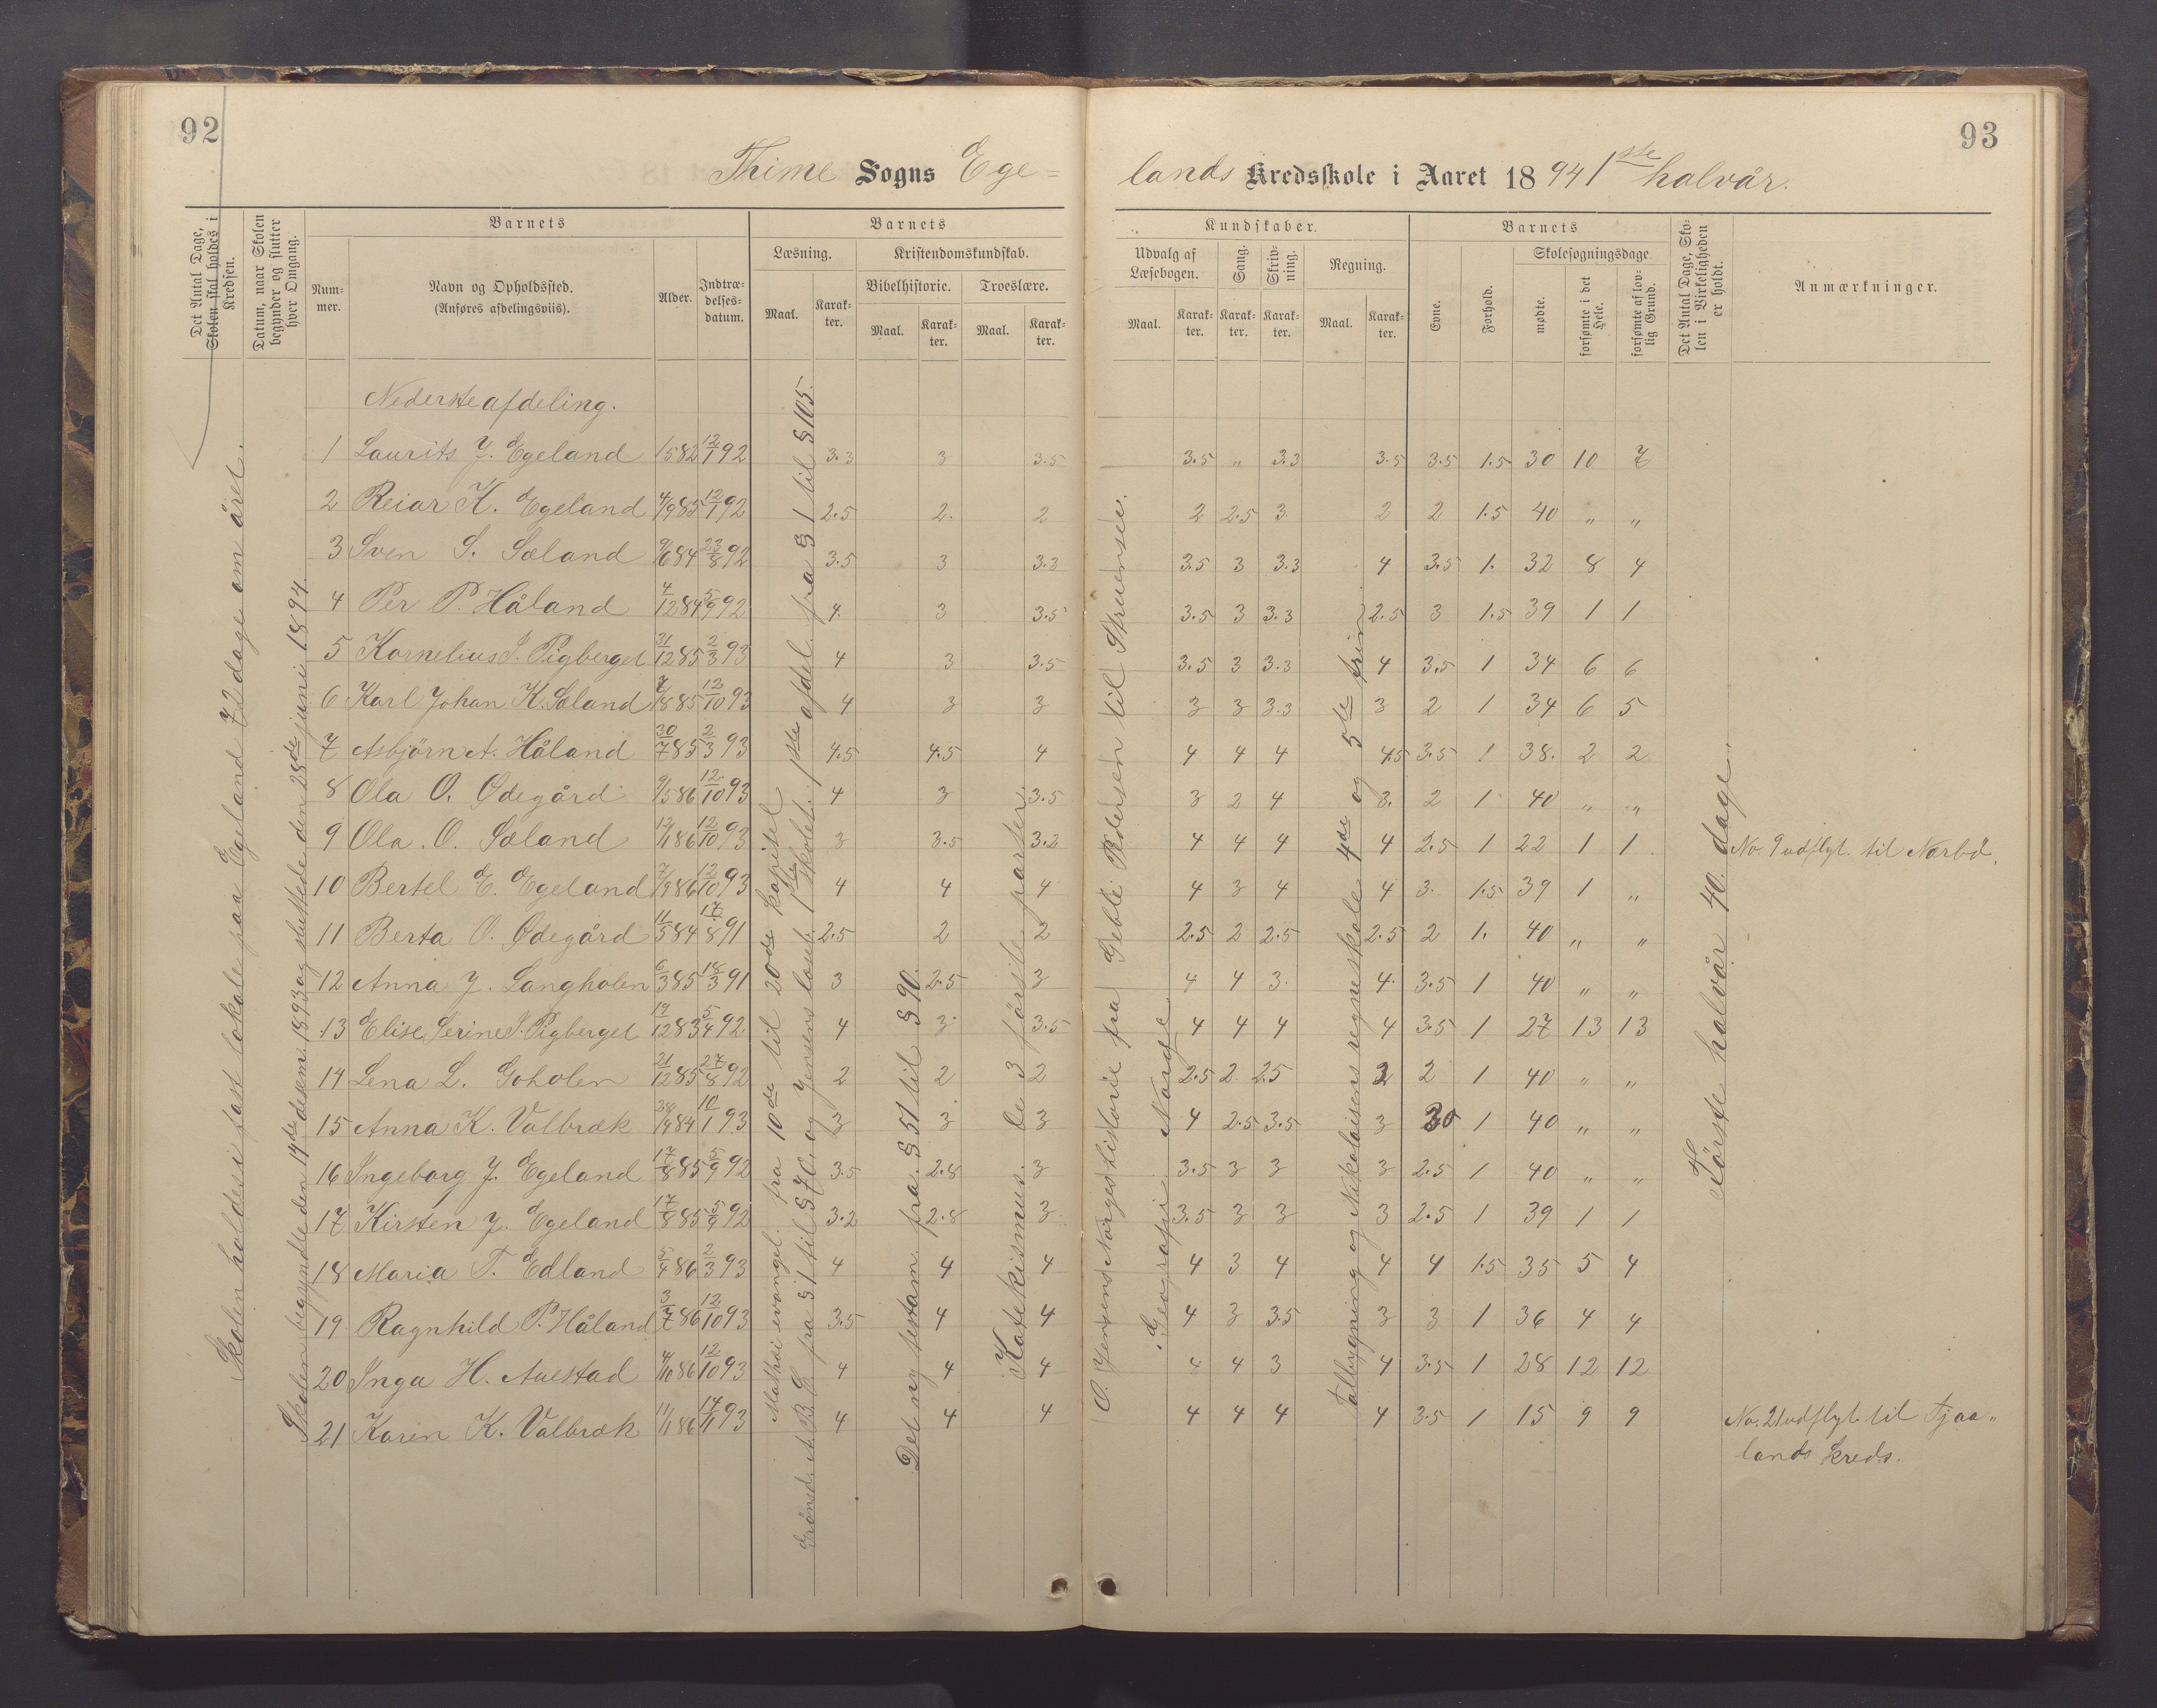 92
93
Thime Sogns Ege=
lands Kredsskole i Aaret 1894 1ste halvår.
Det Antal Dage, Skolen skal holdes i Kredsen.
Datum, naar Skolen begynder og slutter hver Omgang.
Barnets
Barnets
Kundskaber.
Barnets
Det Antal Dage, Skolen i Virkeligheden er holdt.
Anmærkninger.
Nummer.
Navn og Opholdssted.
(Anføres afdelingsviis).
Alder.
Indtrædelsesdatum.
Læsning.
Kristendomskundskab.
Bibelhistorie.
Troeslære.
Udvalg af Læsebogen.
Sang.
Skrivning.
Regning.
Evne.
Forhold.
Skolesøgningsdage
mødte.
forsømte i det Hele.
forsømte af lovlig Grund.
Maal. Karakter. Maal. Karakter. Maal. Karakter. Maal. Karakter. Karakter. Karakter. Maal. Karakter.
Skolen holdes i fast lokale paa Egeland 72 dage om året.
Skolen begyndte den 14de desem. 1893 og sluttede den 28de juni 1894.
Mathæi evangel. fra 10de til 20de kapitel
A. B. C. fra § 1 til § 70, og Jensens læseb. 1ste skolet. 1ste afdel. fra § 1 til § 105.
Det ny testam. fra § 51 til § 90.
Katekismus. De 3 første parter.
O. Jensens Norgeshistorie fra Geble Pedersen til Struensee.
Geografi Norge
Talbygning og Nikolaisens regneskole 4de og 5te trin
Første halvår 40 dage.
Nederste afdeling.
1 Laurits J. Egeland 1/5 82 12/1 92 3.3 3 3.5 3.5 „ 3.3 3.5 3.5 1.5 30 10 7
2 Reiar K. Egeland 4/9 85 12/1 92 2.5 2. 2 2 2.5 3 2 2 1.5 40 „ „
3 Sven S. Sæland 9/6 84 23/8 92 3.5 3 3.3 3.5 3 3.3 4 3.5 1. 32 8 4
4 Per P. Håland 4/12 84 5/9 92 4. 3 3.5 3.5 3 3.3 2.5 3 1.5 39 1 1
5 Kornelius S. Pigberget 31/12 85 2/3 93 4 3 3.5 3.5 3 3.3 4 3.5 1 34 6 6
6 Karl Johan K. Sæland 7/8 85 12/10 93 4 3 3 3 3 3.3 3 2 1 34 6 5
7 Asbjørn A. Håland 30/7 85 2/3 93 4.5 4.5 4 4 4 4 4.5 3.5 1 38. 2 2
8 Ola O. Ødegård 9/5 86 12/10 93 4 3 3.5 3 2 4 3. 2 1 40 „ „
9 Ola. O. Sæland 12/1 86 12/10 93 3 3.5 3.2 4 4 4 4 2.5 1 22 1 1 No. 9 udflyt. til Nærbø.
10 Bertel E. Egeland 7/9 86 12/10 93 4 4 4 4 3 4 4 3. 1.5 39 1 „
11 Berta O. Ødegård 11/5 84 17/8 91 2.5 2 2 2.5 2 2.5 2.5 2 1. 40 „ „
12 Anna J. Langholen 6/3 85 18/3 91 3 2.5 3 4 4 3. 4. 3.5 1 40 „ „
13 Elise Serine S. Pigberget 19/12 83 5/4 92 4 3 3.5 4 4 4 4 3.5 1 27 13 13
14 Lena L. Goholen 21/12 85 27/8 92 2 2 2 2.5 2 2.5 2 2 1 40 „ „
15 Anna K. Valbræk 28/4 84 10/1 93 3 3 3 4 2.5 3.5 3 30 1 40 „ „
16 Ingeborg J. Egeland 17/8 85 5/9 92 3.5 2.8 3 3.5 3 3 3 2.5 1 40 „ „
17 Kirsten J. Egeland 17/8 85 5/9 92 3.2 2.8 3 3.5 3 3 3 2.5 1 39 1 1
18 Maria T. Edland 5/4 86 2/3 93 4 4 4 4 3 4 4 4 1.5 35 5 4
19 Ragnhild P. Håland 3/7 86 12/10 93 3.5 4 4 4 3 3.5 3 3 1 36 4 4
20 Inga H. Auestad 4/10 86 12/10 93 4 4 4 4 4 3 4 3.5 1 28 12 12
21 Karen K. Valbræk 11/1 86 14/11 93 4 4 4 4 4 4 4 3.5 1 15 9 9 No. 21 udflyt. til Tjaa„
lands kreds.